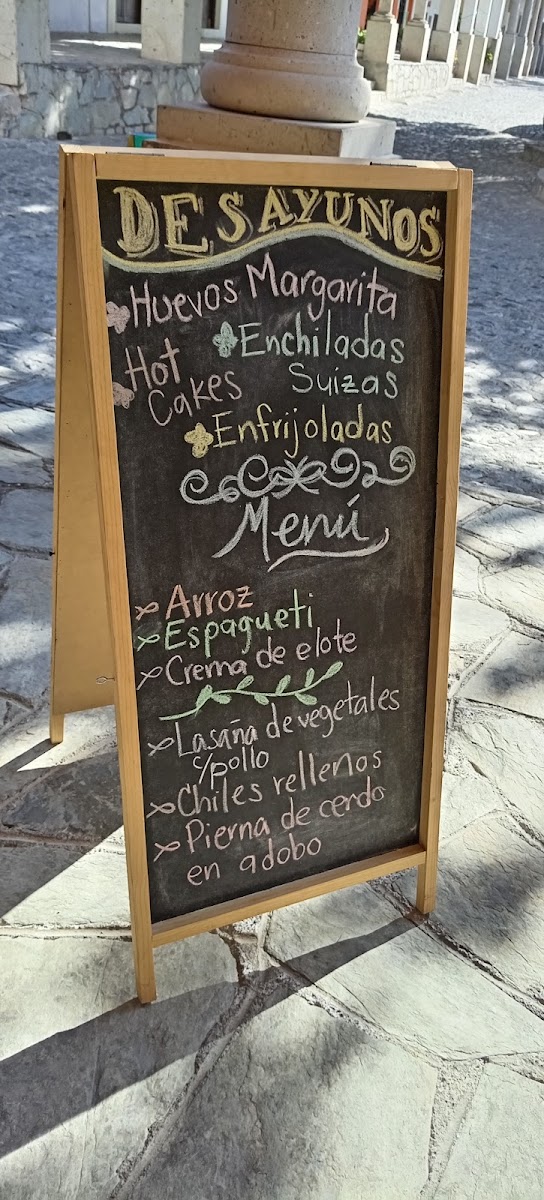 DESAYUNOS
Huevos Margarita
Hot
Cakes
Enchiladas
Suizas
Enfrijoladas
Menú
Arroz
Espagueti
Crema de elote
Lasaña de vegetales
c/pollo
Chiles rellenos
Pierna de cerdo
en adobo